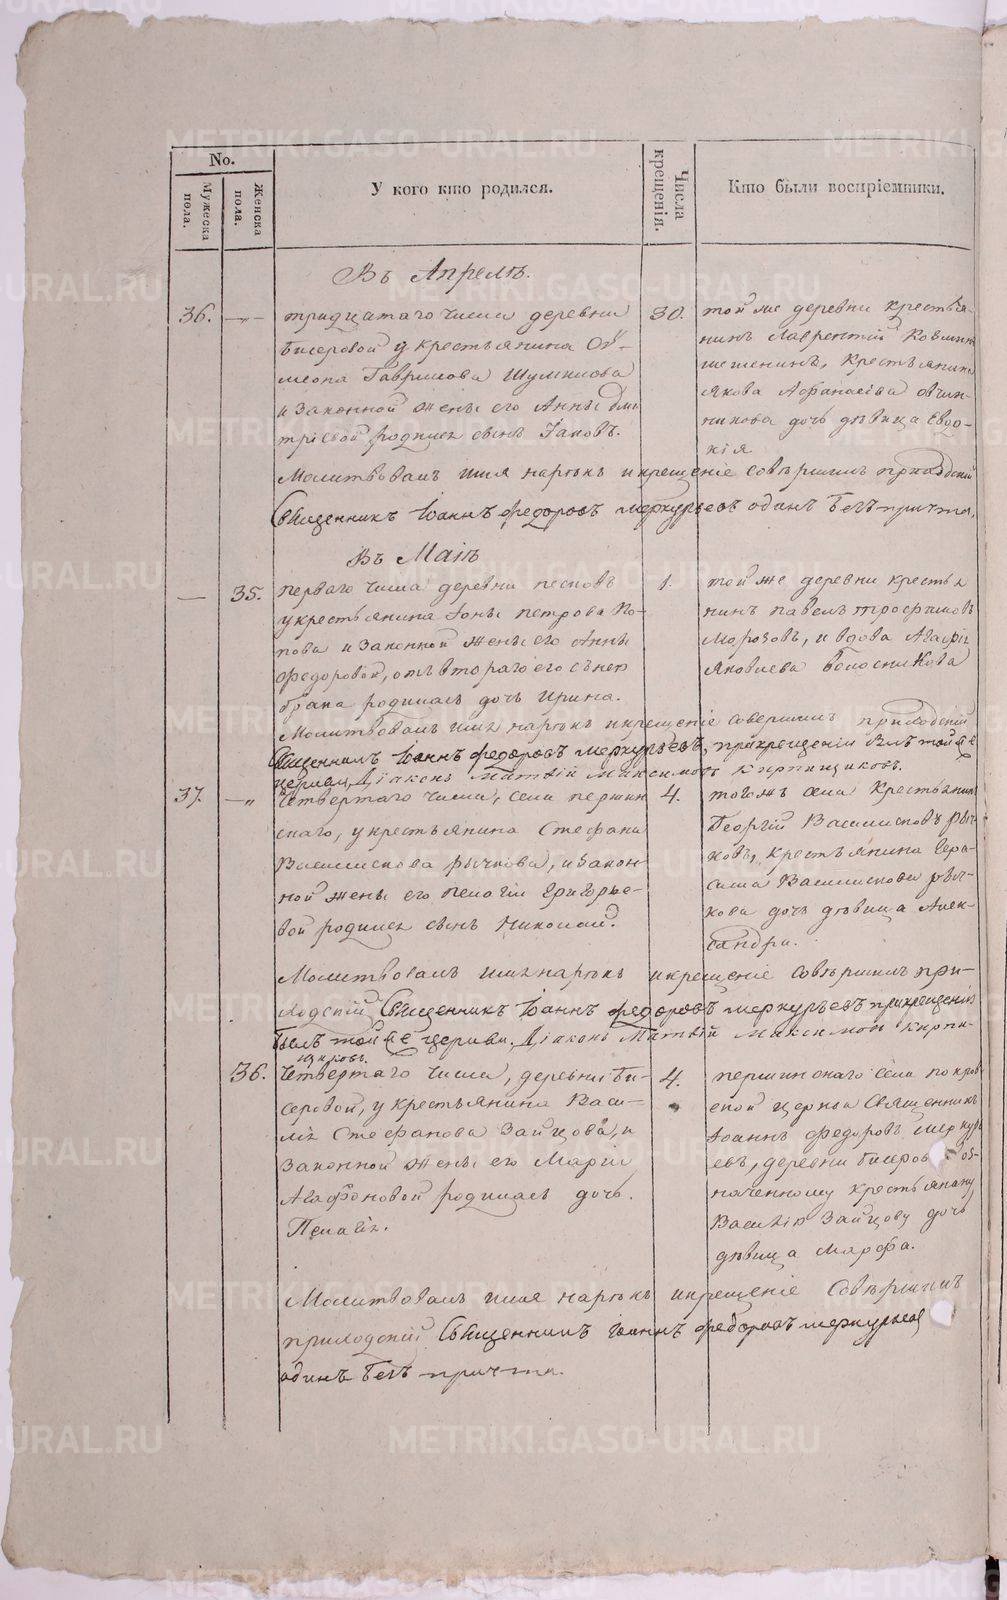 METRIKI.GASO-URAL.RU
No.
Мужеска пола.
Женска пола.
У кого кто родился.
Числа крещенія.
Кто были воспріемники.
Въ Апрелѣ.
36.
тридцатаго числа деревни
Бисеровой у крестьянина
Гаврилова Шумилова
и законной жены его Анны Дми-
тріевой родился сынъ Іаковъ.
30.
той же деревни крестья-
нинъ Лаврентій
крестьянина
Якова Афанасіева Овчин-
никова дочь дѣвица Евдо-
кія
Молитвовалъ имя нарѣкъ и крещеніе совѣршилъ приходскій
Священникъ Іоаннъ Федоровъ Меркурьевъ одинъ безъ причта.
Въ Маіѣ
35.
перваго числа деревни песковъ
у крестьянина Іоны Петрова По-
пова и законной жены его Анны
Федоровой, отъ втораго его съ ней
брака родилась дочь Ирина.
1.
той же деревни крестья
нинъ павелъ трофимовъ
Морозовъ, и вдова Агафія
Яковлева Белосникова
Молитвовалъ имя нарѣкъ и крещеніе совершилъ приходскій
Священникъ Іоаннъ Федоровъ Меркурьевъ, при крещеніи былъ той же
церкви Діаконъ Матвій Максимовъ Кирпищиковъ.
37.
Четвертаго числа, села першин
скаго, у крестьянина Стефана
Василискова рычкова, и закон-
ной жены его Пелагіи Григорье-
вой родился сынъ Николай.
4.
тогожъ села крестьянинъ
Георгій Василисковъ рыч
ковъ, крестьянина Гера-
сима Василискова рыч-
кова дочь дѣвица Алек-
сандра.
Молитвовалъ имя нарѣкъ и крещеніе совѣршилъ при-
ходскій Священникъ Іоаннъ Федоровъ Меркурьевъ при крещеніи
былъ той же церкви. Діаконъ Матвій Максимовъ Кирпи-
щиковъ.
36.
Четвертаго числа, деревни Би-
серовой, у крестьянина Васи-
лія Стефанова Зайцова, и
законной жены его Маріи
Агафоновой родилась дочь.
Пелагія.
4.
першинскаго села покров
ской церкви Священникъ
Іоаннъ Федоровъ Меркурь
евъ, деревни Бисеровой об-
наченному крестьянину
Василію Зайцову дочь
дѣвица Марфа.
Молитвовалъ имя нарѣкъ и крещеніе Совѣршилъ
приходскій Священникъ Іоаннъ Федоровъ Меркурьевъ
одинъ безъ причта.